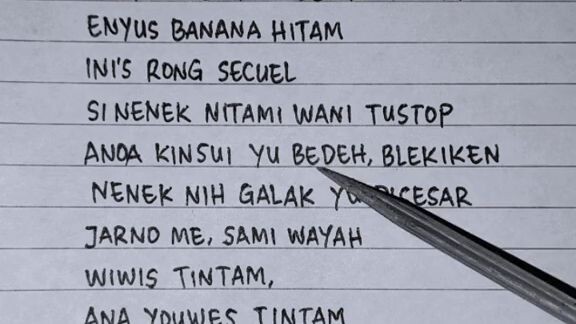 ENYUS BANANA HITAM
INI'S RONG SECUEL
SI NENEK NITAMI WANI TUSTOP
ANDA KINSUI YU BEDEH, BLEKIKEN
NENEK NIH GALAK
JARNO ME, SAMI WAYAH
WIWIS TINTAM,
ANA YOUWES TINTAM